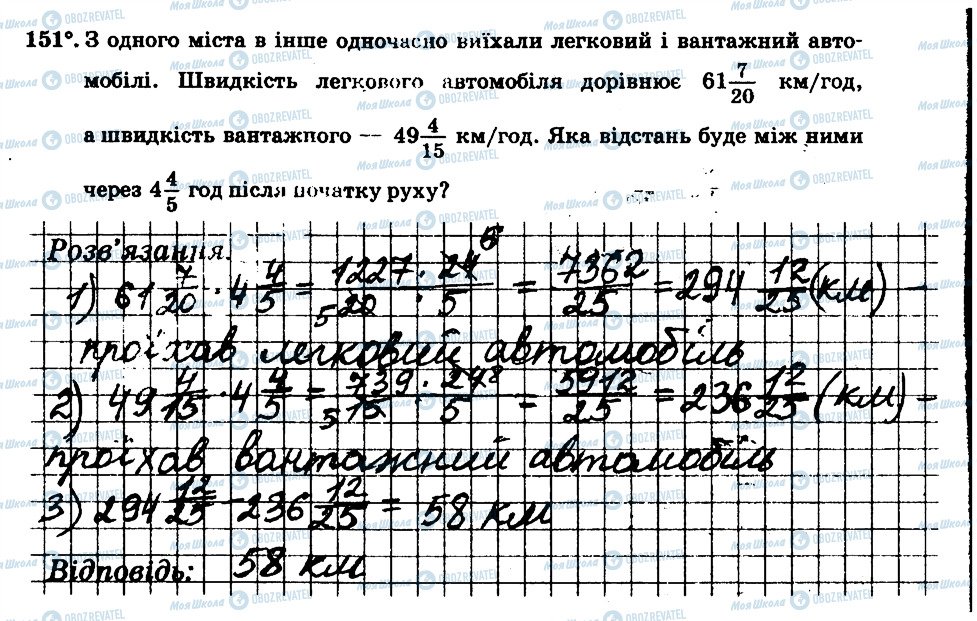 151°. З одного міста в інше одночасно виїхали легковий і вантажний авто-
мобілі. Швидкість легкового автомобіля дорівнює 61 7/20 км/год,
а швидкість вантажного — 49 4/15 км/год. Яка відстань буде між ними
через 4 4/5 год після початку руху?
Розв'язання.
1) 61 7/20 · 4 4/5 = 1227 · 24 6 / 5 20 · 5 = 7362/25 = 294 12/25 (км) –
проїхав легковий автомобіль
2) 49 4/15 · 4 4/5 = 739 · 24 8 / 5 15 · 5 = 5912/25 = 236 12/25 (км) –
проїхав вантажний автомобіль
3) 294 12/25 – 236 12/25 = 58 км
Відповідь: 58 км